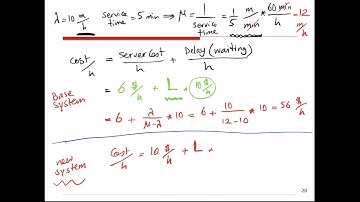 λ = 10 m/h service time = 5 min ⇒ μ = 1/service time = 1/5 m/min * 60 min/h = 12 m/h
Cost/h = Server Cost/h + Delay (waiting)/h
Base system = 6 $/h + L * 10 $/h
= 6 + λ/μ-λ * 10 = 6 + 10/12-10 * 10 = 56 $/h
new system Cost/h = 10 $/h + L *
28